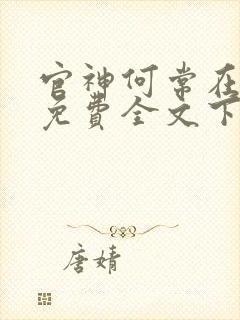 官神何常在
免費全文下
唐婧